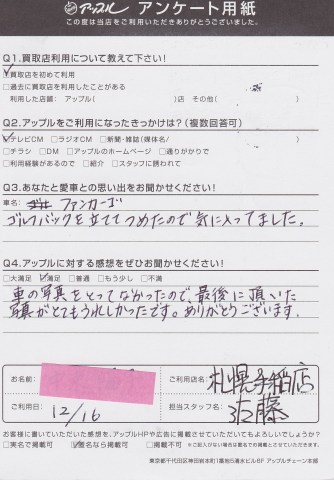 アップル アンケート用紙
この度は当店をご利用いただきありがとうございました。
Q1.買取店利用について教えて下さい!
☑買取店を初めて利用
□過去に買取店を利用したことがある
利用した店舗: アップル( )店 その他( )
Q2.アップルをご利用になったきっかけは?(複数回答可)
☑テレビCM □ラジオCM □新聞・雑誌(媒体名/ )
□チラシ □DM □アップルのホームページ □通りがかりで
□利用経験があるので □紹介 □スタッフに誘われて
Q3.あなたと愛車との思い出をお聞かせください!
車名: ファンカーゴ
ゴルフバックを立ててつめたので気に入ってました。
Q4.アップルに対する感想をぜひお聞かせください!
□大満足 ☑満足 □普通 □もう少し □不満
車の写真をとってなかったので、最後に頂いた
写真がとてもうれしかったです。ありがとうございます。
お名前:
ご利用店名: 札幌手稲店
ご利用日: 12/16
担当スタッフ名: 佐藤
お客様に書いていただいた感想を、アップルHPや広告に掲載させていただいてもよろしいでしょうか?
□実名で掲載可 ☑匿名なら掲載可 □掲載不可
※ご記入がない場合は匿名での掲載とさせていただきます。
東京都千代田区神田岩本町1番地6清水ビル8F アップルチェーン本部